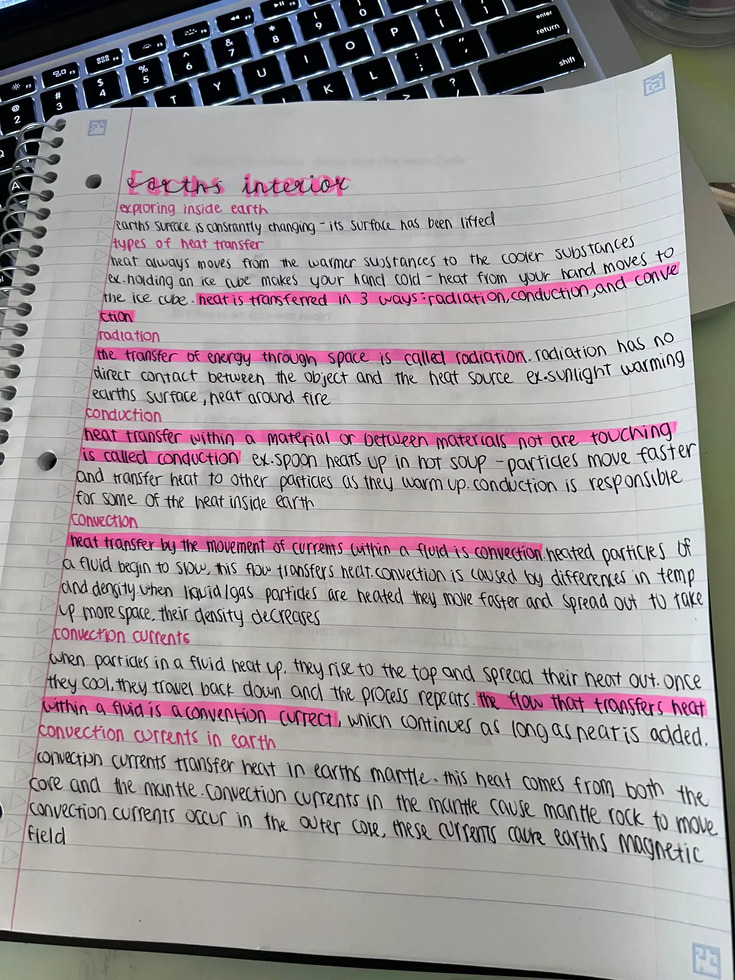 enter
return
shift
& 7
* 8
( 9
) 0
^ 6
% 5
$ 4
# 3
@ 2
T Y U I O P
K L
Earths interior
exploring inside earth
earths surface is constantly changing - its surface has been lifted
types of heat transfer
heat always moves from the warmer substances to the cooler substances
ex. holding an ice cube makes your hand cold - heat from your hand moves to
the ice cube. heat is transferred in 3 ways: radiation, conduction, and conve
ction
radiation
the transfer of energy through space is called radiation. radiation has no
direct contact between the object and the heat source ex. sunlight warming
earths surface, heat around fire
conduction
heat transfer within a material or between materials not are touching
is called conduction ex. spoon heats up in hot soup - particles move faster
and transfer heat to other particles as they warm up. conduction is responsible
for some of the heat inside earth
convection
heat transfer by the movement of currents within a fluid is convection heated particles of
a fluid begin to slow, this flow transfers heat. convection is caused by differences in temp
and density. when liquid/gas particles are heated they move faster and spread out to take
up more space, their density decreases
convection currents
when particles in a fluid heat up, they rise to the top and spread their heat out. once
they cool, they travel back down and the process repeats. the flow that transfers heat
within a fluid is a convention currect, which continues as long as heat is added.
convection currents in earth
convection currents transfer heat in earths mantle. this heat comes from both the
core and the mantle. convection currents in the mantle cause mantle rock to move
convection currents occur in the outer core, these currents cause earths magnetic
field